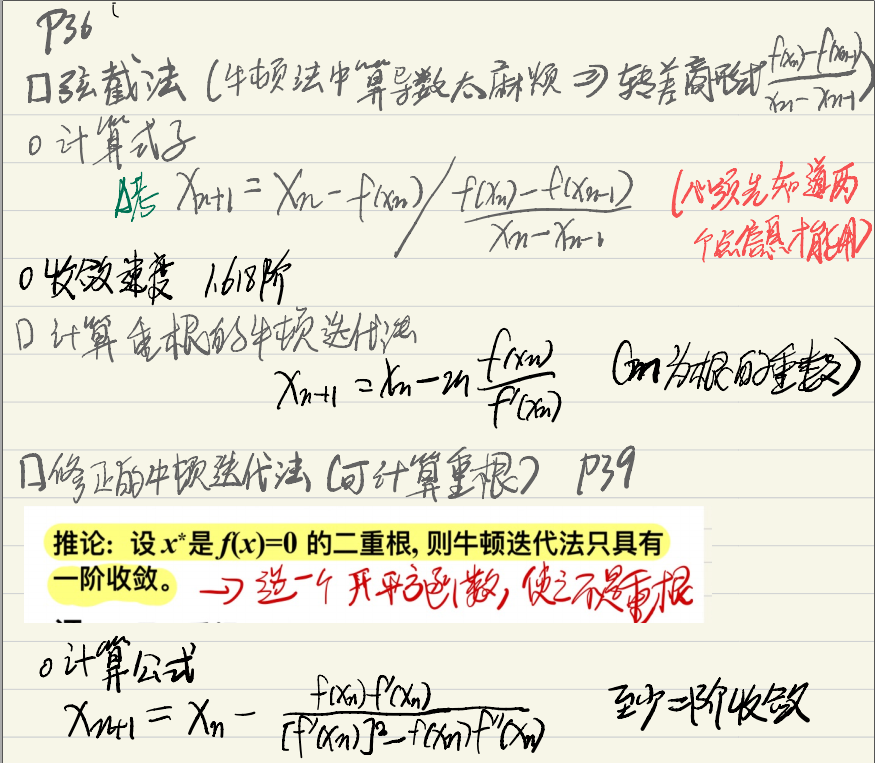 P36
弦截法 (牛顿法中算导数太麻烦 => 转差商形式 f(xn)-f(xn-1) / xn-xn-1)
计算式子
必考 xn+1 = xn - f(xn) / f(xn)-f(xn-1) / xn-xn-1 (必须先知道两
个点信息才能用)
收敛速度 1.618阶
计算重根的牛顿迭代法
xn+1 = xn - m f(xn) / f'(xn) (m为根的重数)
修正的牛顿迭代法 (可计算重根) P39
推论: 设 x*是 f(x)=0 的二重根, 则牛顿迭代法只具有
一阶收敛。 → 造一个开平方函数, 使之不是重根
计算公式
xn+1 = xn - f(xn)f'(xn) / [f'(xn)]²-f(xn)f''(xn) 至少二阶收敛